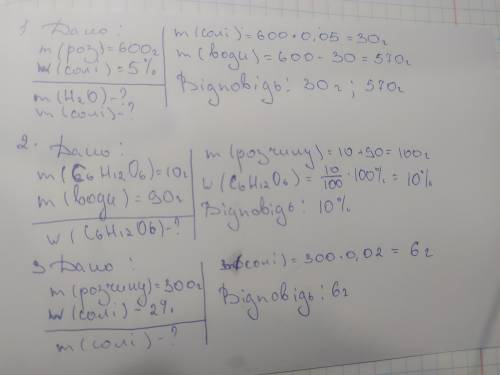 1 Дано:
m(роз)=600г
w(солі)=5%
m(H2O)-?
m(солі)-?
m(солі)=600·0,05=30г
m(води)=600-30=570г
Відповідь: 30г; 570г
2. Дано:
m(C6H12O6)=10г
m(води)=90г
w(C6H12O6)-?
m(розчину)=10+90=100г
w(C6H12O6)=10/100·100%=10%
Відповідь: 10%
3 Дано:
m(розчину)=300г
w(солі)-2%
m(солі)-?
m(солі)=300·0,02=6г
Відповідь: 6г